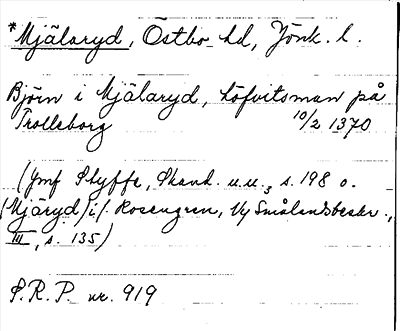 *Mjälaryd, Östbo hd, Jönk. l.
Björn i Mjälaryd, höfvitsman på
Trolleborg 10/2 1370
(Jmf Styffe, Skand. u. u.3 s. 198 o.
(Mjäryd) i/. Rosengren, Ny Smålandsbeskr.,
III, s. 135)
S.R.P. nr. 919